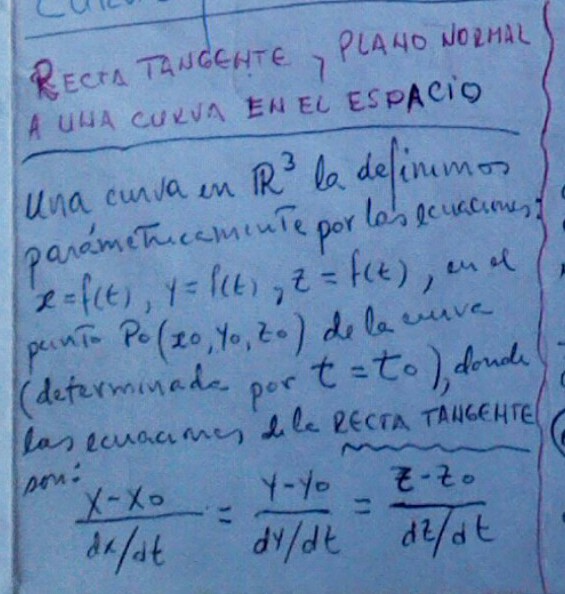 RECTA TANGENTE y PLANO NORMAL
A UNA CURVA EN EL ESPACIO
Una curva en ℝ³ la definimos
paramétricamente por las ecuaciones:
x=f(t), y=f(t), z=f(t), en el
punto Po(xo,yo,zo) de la curva
(determinada por t=to), donde
las ecuaciones de la RECTA TANGENTE
son:
x-xo/dx/dt = y-yo/dy/dt = z-zo/dz/dt